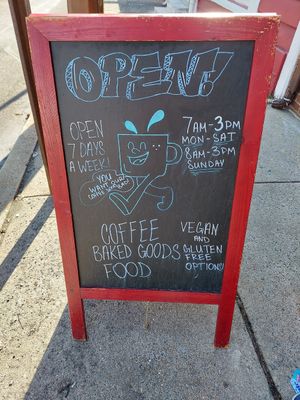 OPEN!
OPEN
7 DAYS
A WEEK!
7AM-3PM
MON-SAT
8AM-3PM
SUNDAY
YOU
WANT OUR
COFFEE
COFFEE
BAKED GOODS
FOOD
VEGAN
AND
GLUTEN
FREE
OPTIONS!